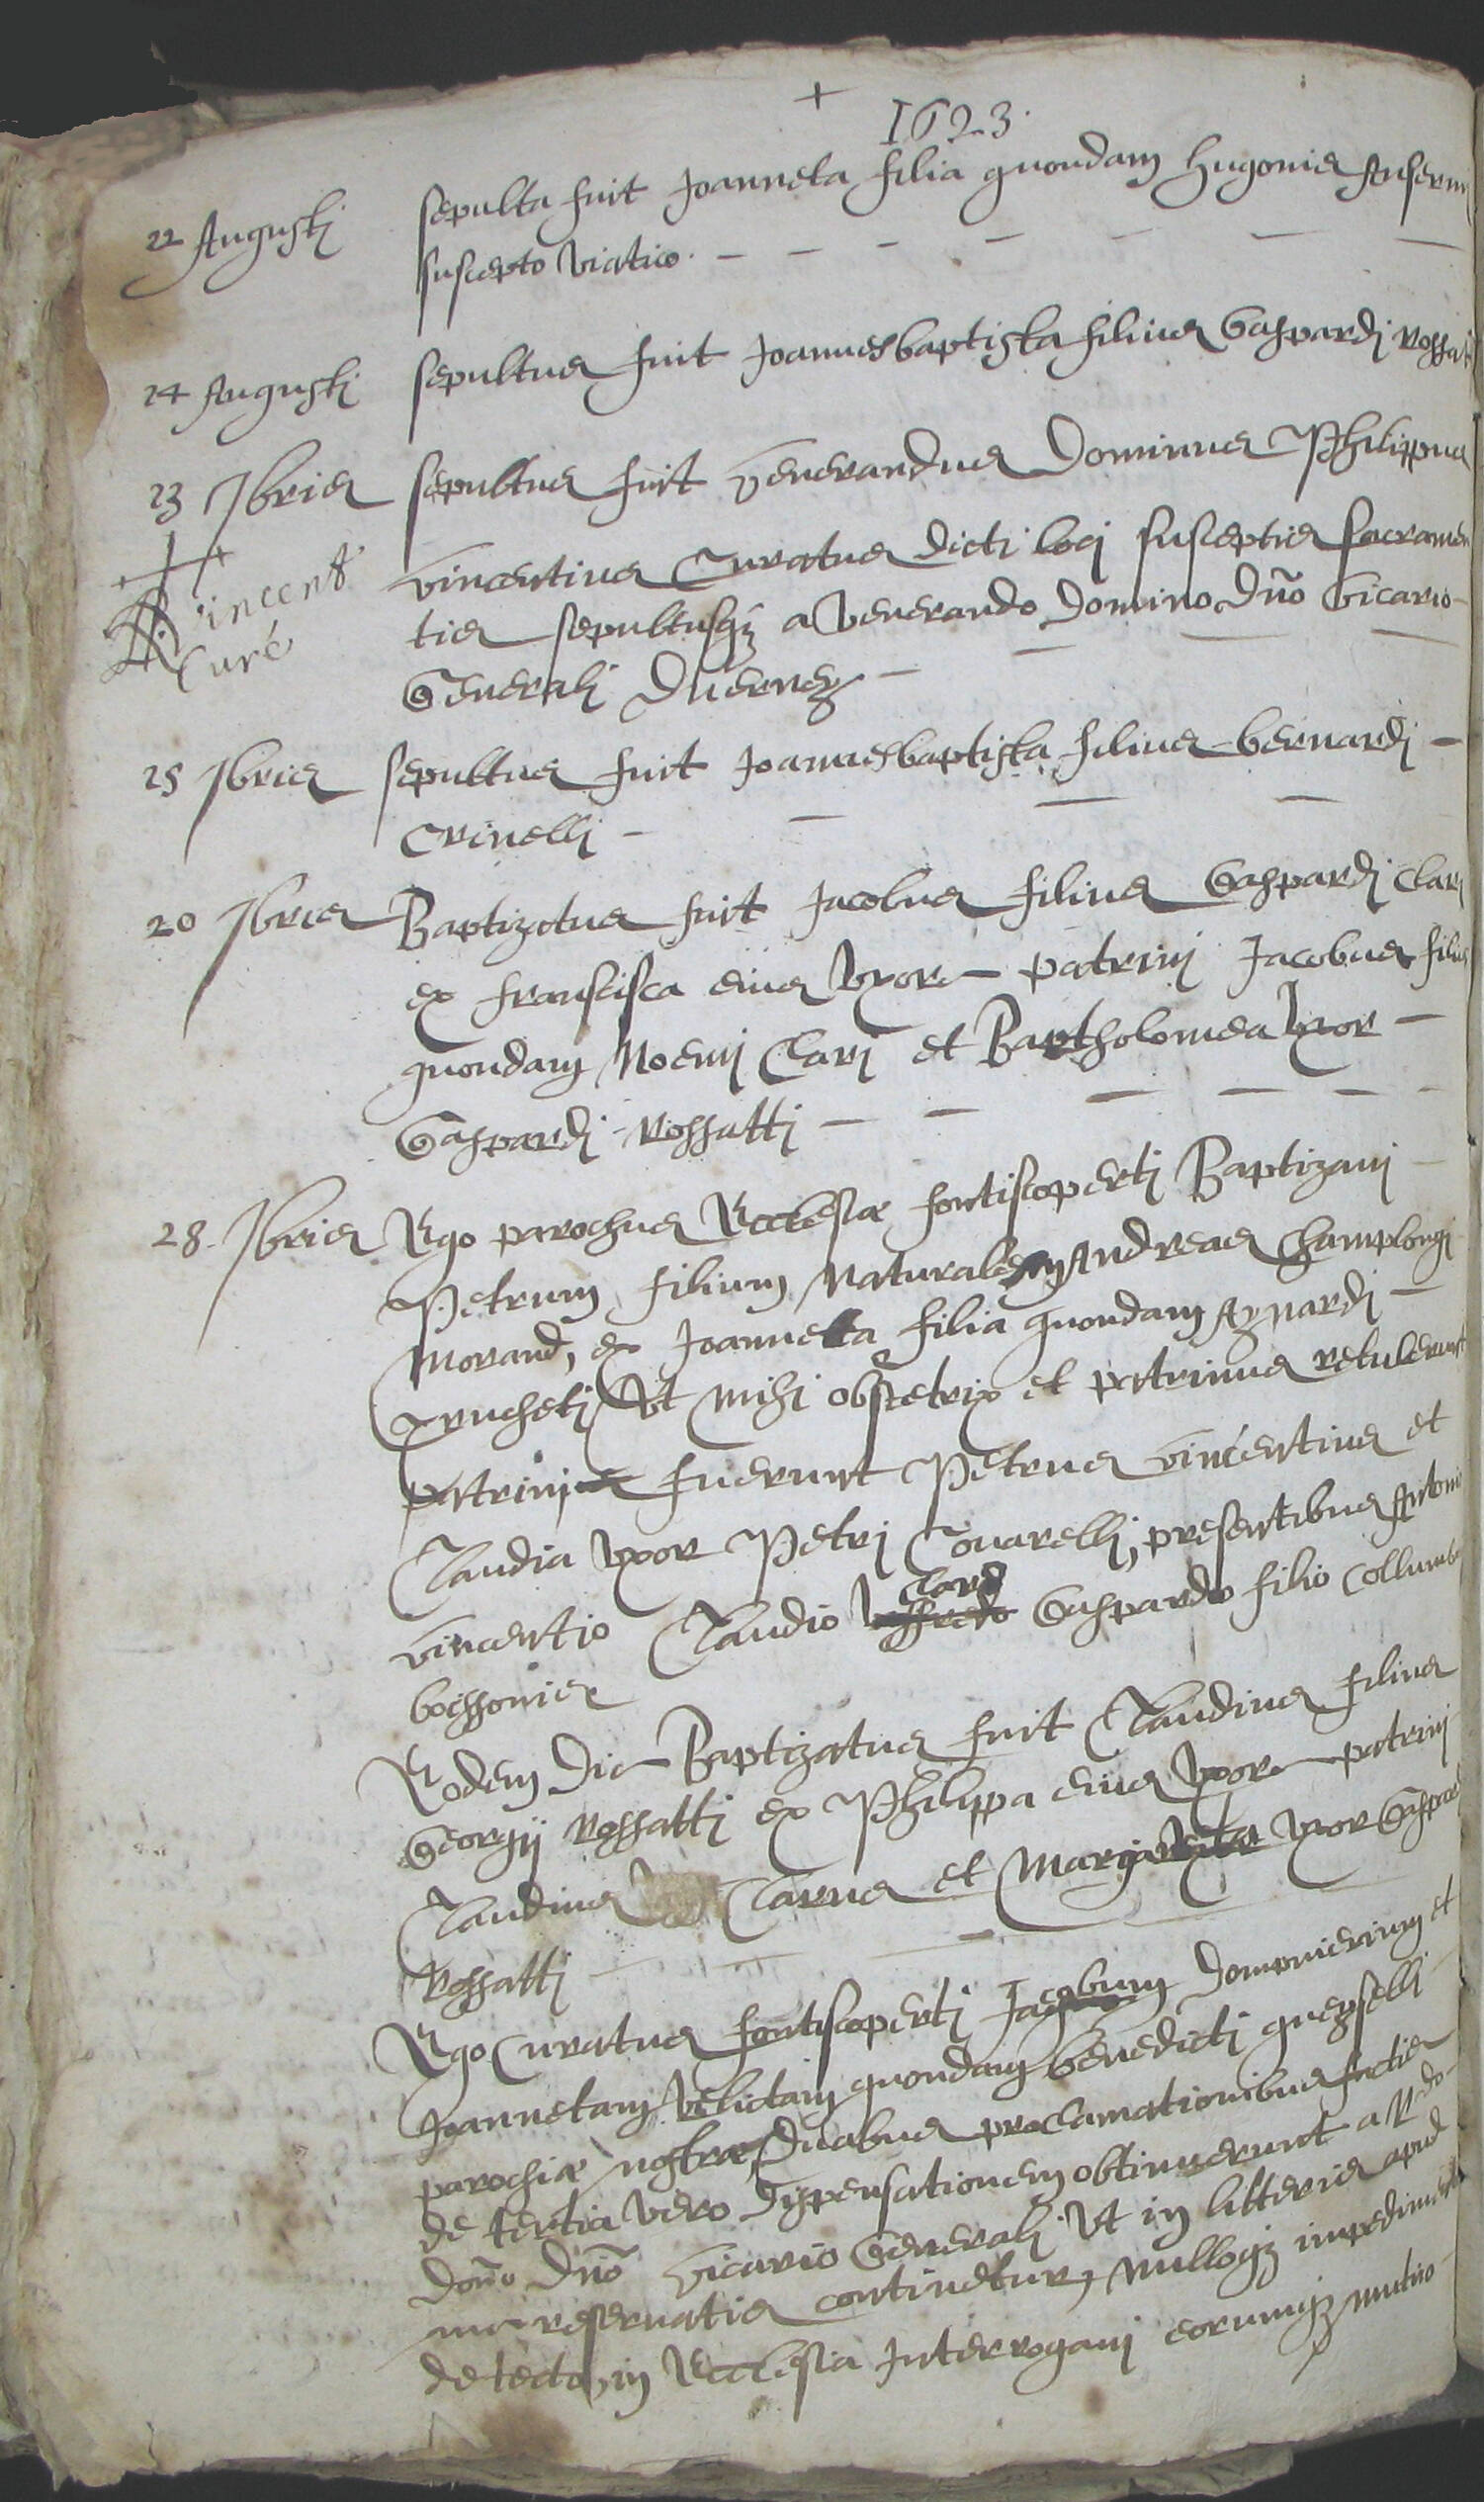 +
1623.
22 Augusti sepulta fuit Joanneta filia quondam Hugonis Anserm
suscepto viatico. - - - - - -
24 Augusti sepultus fuit Joannesbaptista filius Gaspardi Rossati
23 7bris sepultus fuit venerandus Dominus Philippus
Vincent
Curé
vincentius Curatus dicti loci susceptis sacramen
tis sepultusq; a venerando domino Dno vicario
Generali Duernez -
25 7bris sepultus fuit Joannesbaptista filius bernardi -
Crinelli - - - -
20 7bris Baptizatus fuit Jacobus filius Gaspardi Clari
ex fransisca eius uxore patrini Jacobus filius
quondam Noemi Clari et Bartholomea uxor -
Gaspardi Rossatti - - - - - -
28. 7bris Ego parochus Ecclesiæ fontiscoperti Baptizavi
Petrum filium Naturalem Andreas Champlongi
Morand, ex Joanneta filia quondam Aynardi -
Crucheti Ut mihi obstetrix et patrinus retulerunt
patrini fuerunt Petrus vincentius et
Claudia uxor Petri Covarelli, presentibus Antonio
vincentio Claudio Claro Gaspardo filio Collumbi
boissonis
Eodem Die Baptizatus fuit Claudius filius
Georgij Rossatti ex Philippa eius uxore patrini
Claudius Clarus et Margarita uxor Gaspardi
Rossatti - - -
Ego Curatus fontiscoperti Jacobum Domprierium et
Joannetam Relictam quondam benedicti queyselli
parochiæ nostræ, Duabus proclamationibus factis
de tertia vero dispensationem obtinuerunt a R.do
Domo Dno vicario Generali Ut in litteris apud
me reservatis continetur, nulloq; impedimento
detecto, in Ecclesia Interrogavi eorumq; mutuo